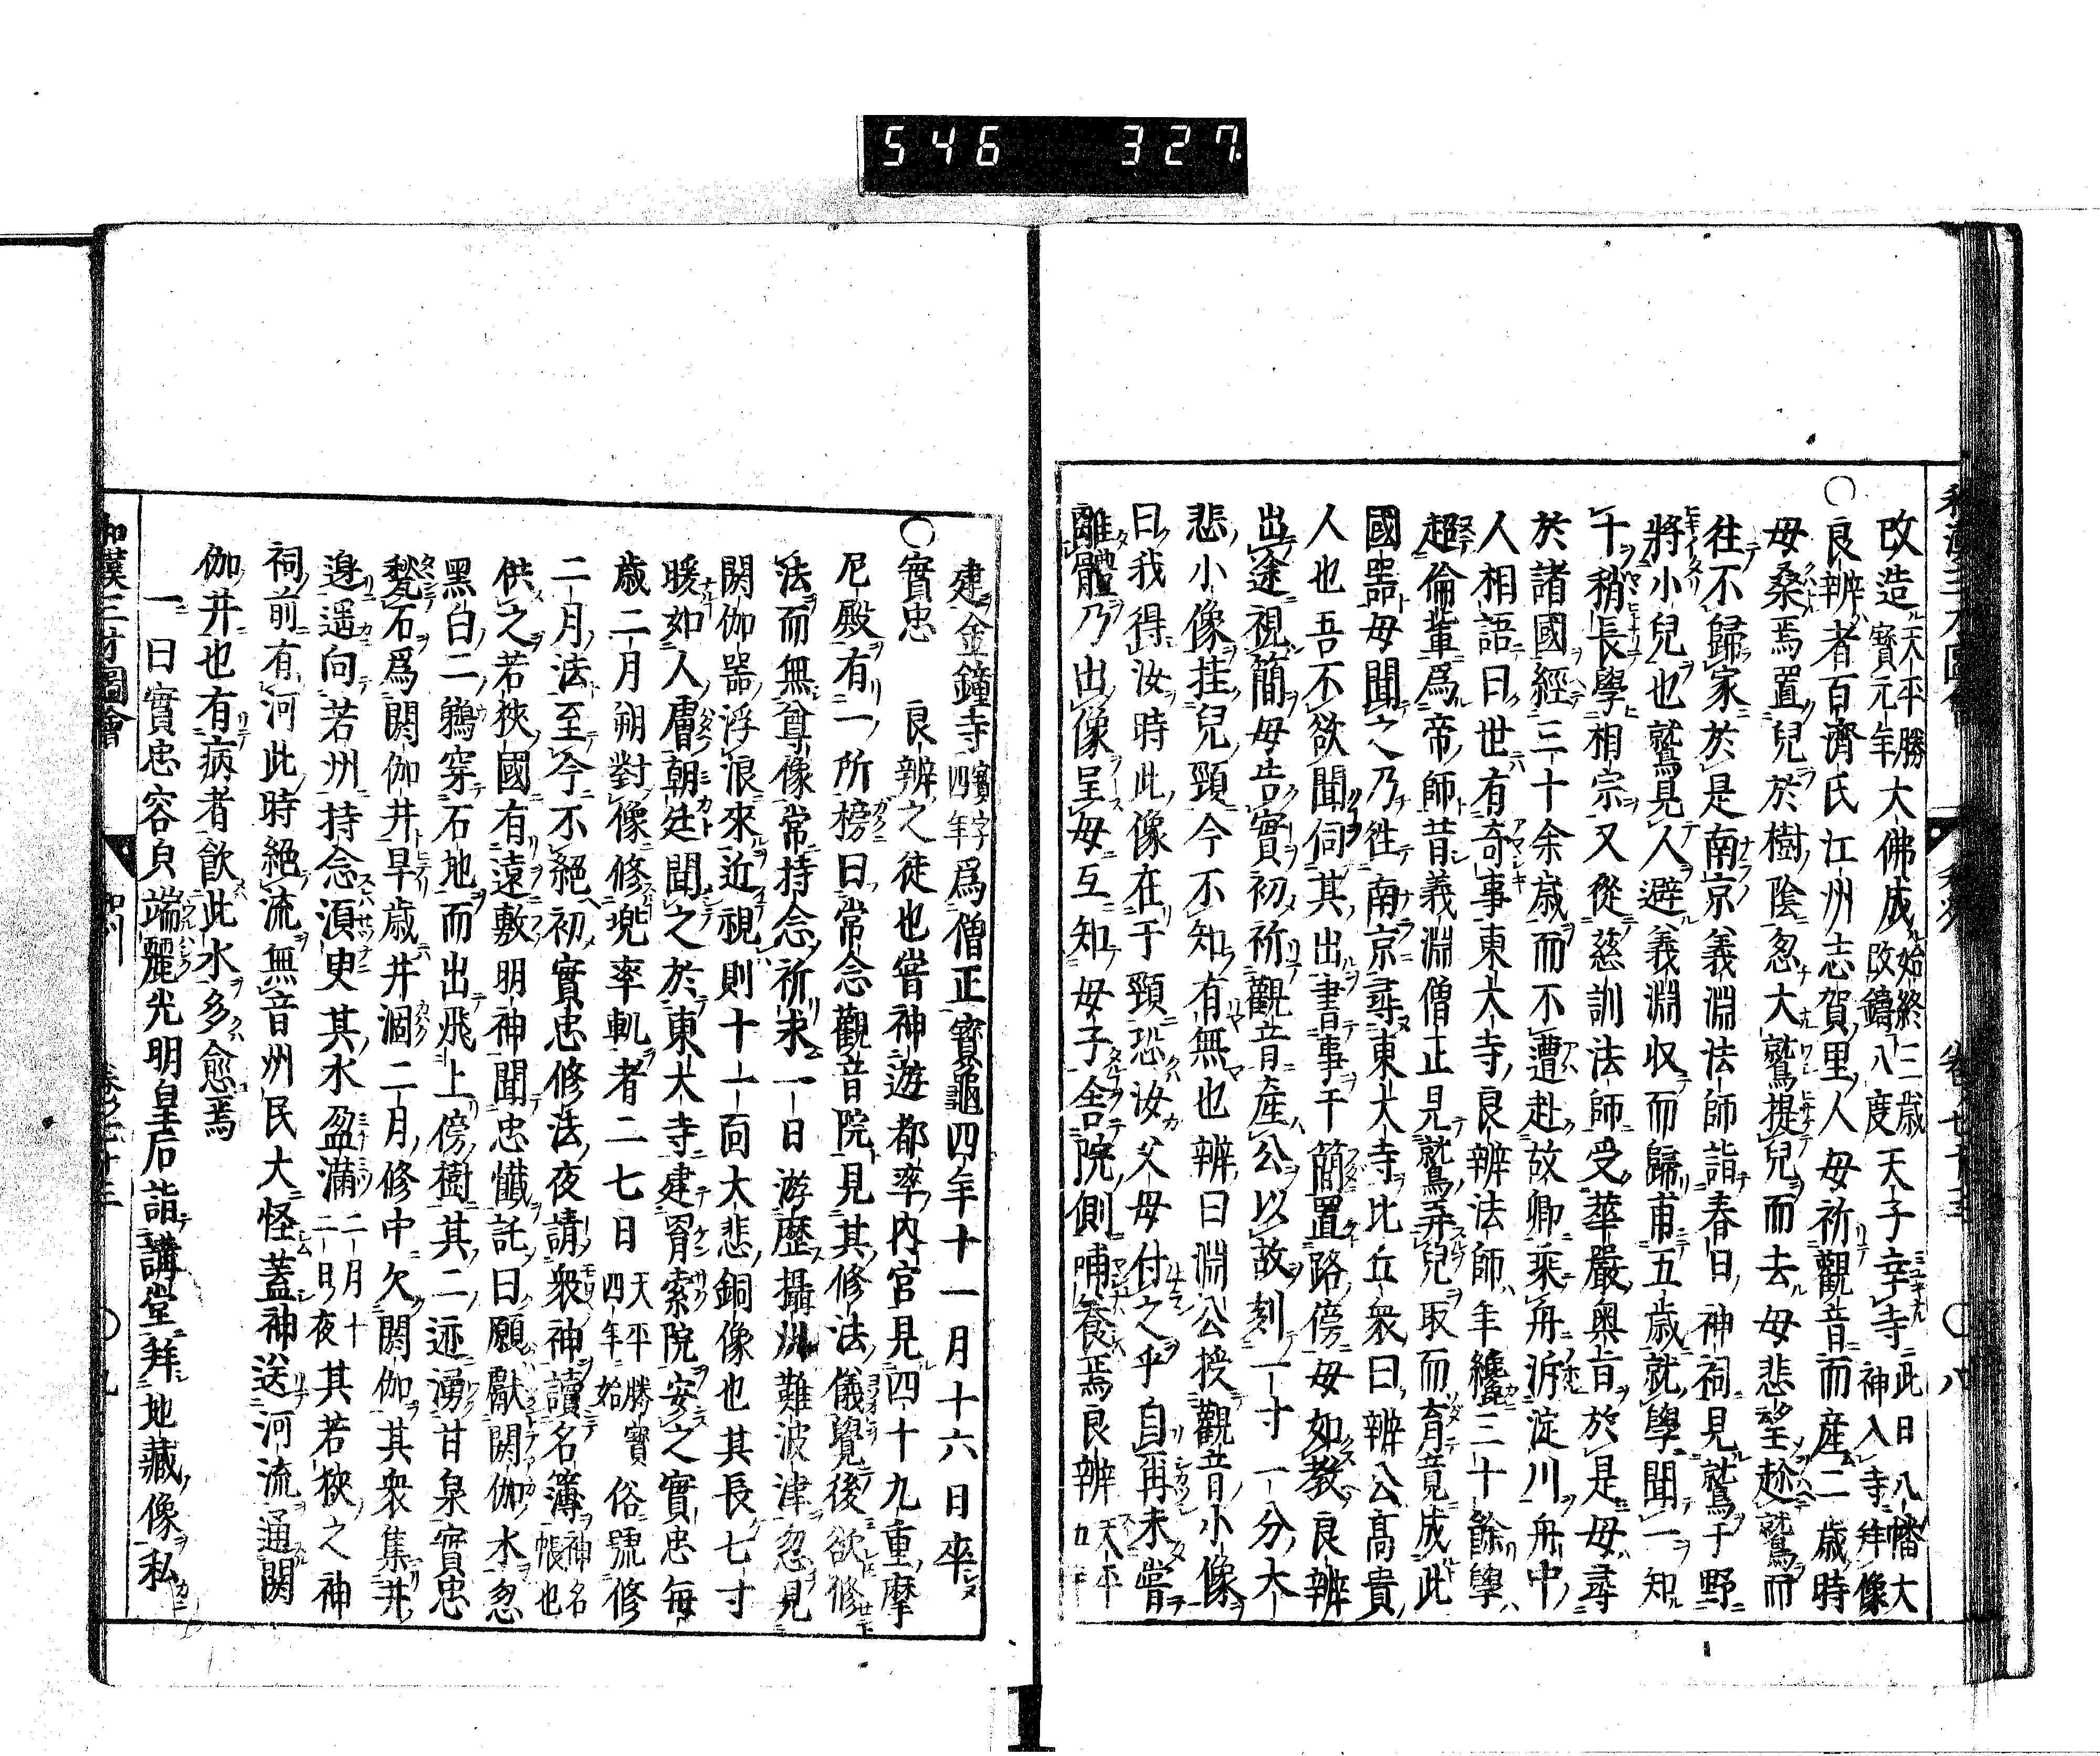 546 327
改造天平勝寶元年大佛成始終三歳改鑄八度天子幸寺此日八幡大神入寺拜像
○良辨者百濟氏江州志賀里人母祈觀音而産二歳時
母桑焉置兒於樹陰忽大鷲提兒而去母悲望趁鷲而
往不歸家於是南京義淵法師詣春日神祠見鷲于野
將小兒也鷲見人避義淵収而歸甫五歳就學聞一知
十稍長學相宗又從慈訓法師受華嚴奥旨於是母尋
於諸國經三十余歳而不遭赴故郷乘舟泝淀川舟中
人相語曰世有奇事東大寺良辨法師年纔三十餘學
超倫輩爲帝師昔義淵僧正見鷲弄兒取而育竟成此
國噐母聞之乃徃南京尋東大寺比丘衆曰辨公髙貴
人也吾不欲聞伺其出書事干簡置路傍母如教良辨
出途視簡母告實初祈觀音産公以故刻一寸一分大
悲小像挂兒頸今不知有無也辨曰淵公授觀音小像
曰我得汝時此像在于頸恐汝父母付之乎自再未嘗
離體乃出像呈母互知母子舎院側哺養焉良辨天平
建金鐘寺寳字四年爲僧正寳龜四年十一月十六日卒
○實忠 良辨之徒也嘗神遊都率内官見四十九重摩
尼殿有一所榜曰常念觀音院見其修法儀覺後欲修
法而無尊像常持念祈求一日游歴攝州難波津忽見
閼伽噐浮浪來近視則十一面大悲銅像也其長七寸
暖如人膚朝廷聞之於東大寺建羂索院安之實忠毎
歳二月朔對像修兠率軌者二七日天平勝寳四年始俗號修
二月法至今不絕初實忠修法夜請衆神讀名簿神名帳也
供之若狹國有遠敷明神聞忠懺託曰願獻閼伽水忽
黑白二鵜穿石地而出飛上傍樹其二迹湧甘泉實忠
甃石爲閼伽井旱歳井涸二月修中欠閼伽其衆集井
邊遥向若州持念須臾其水盈滿二月十二日夜其若狹之神
祠前有河此時絕流無音州民大怪蓋神送河流通閼
伽井也有病者飲此水多愈焉
一日實忠容皃端麗光明皇后詣講堂拜地藏像私
和漢三才圖會